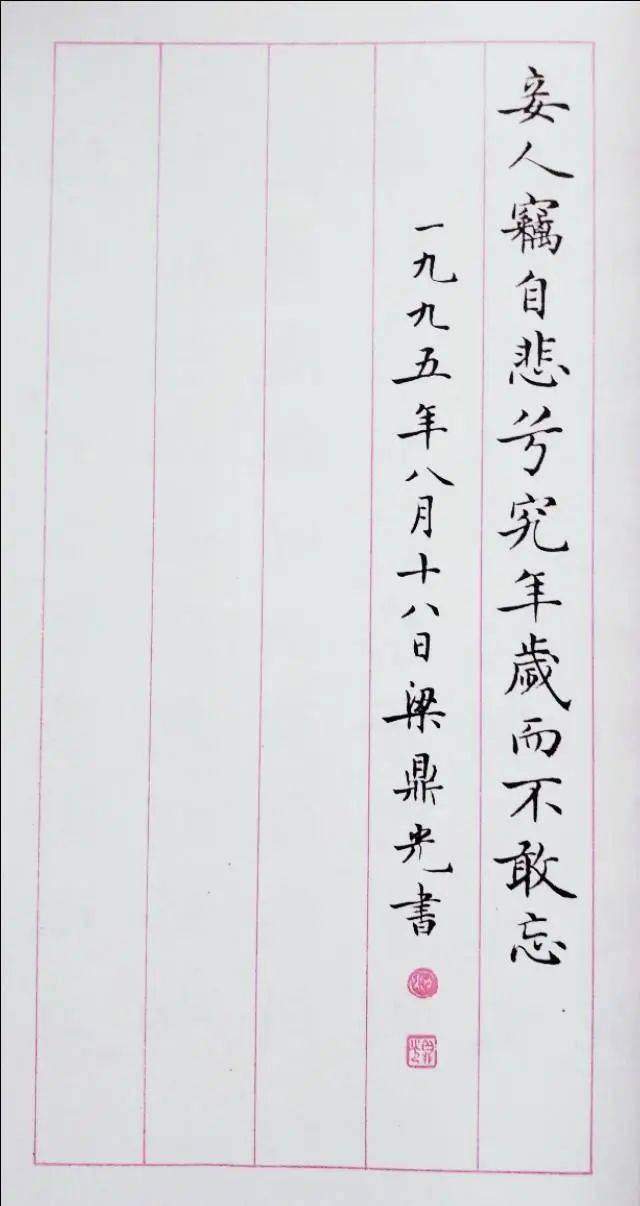 妾人竊自悲兮究年歲而不敢忘
一九九五年八月十八日梁鼎光書